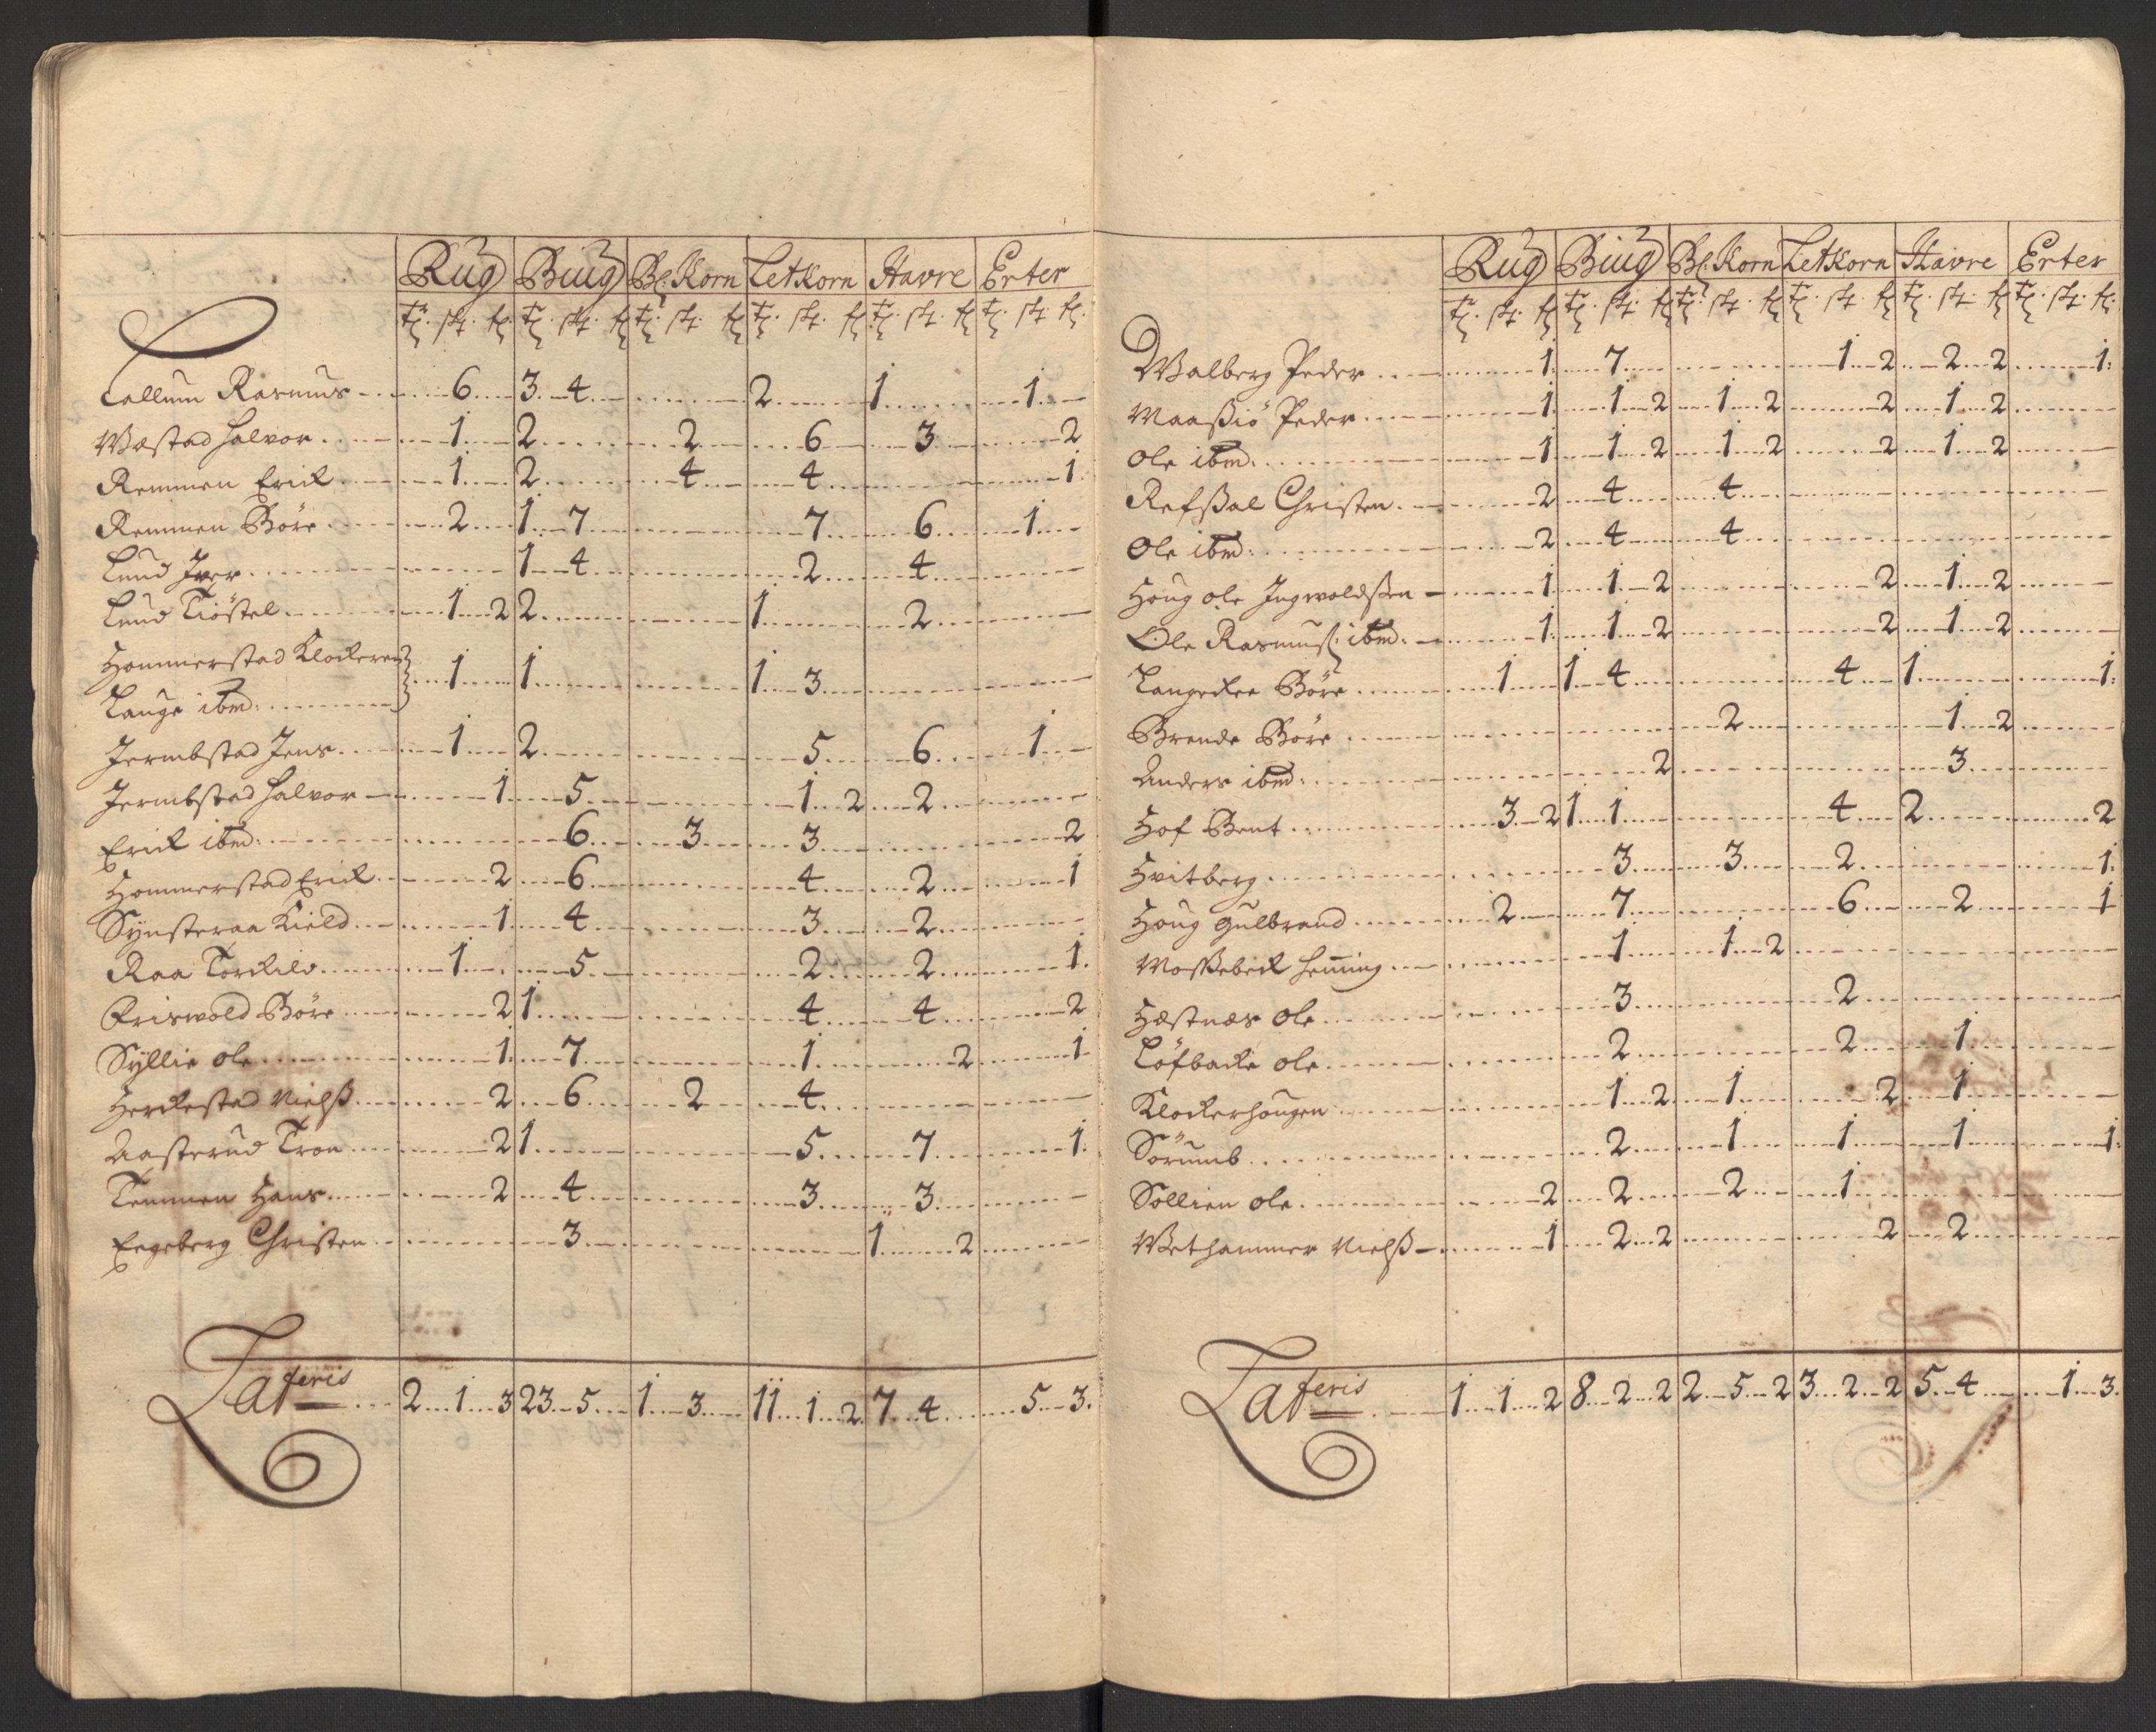 Rug Biug Bl: Korn Letkorn Havre Erter
Callum Rasmus 6 3 4 2 1 1
Wæstad Halvor 1 2 2 6 3 2
Remmen Erick 1 2 4 4 1
Remmen Böre 2 1 7 7 6 1
Lund Iver 1 4 2 4
Lund Tiöstel 1 2 2 1 2
Hommerstad Klockeren
Lauge ibm: 1 1 1 3
Jermbstad Jens 1 2 5 6 1
Jermbstad Halvor 1 5 1 2 2
Erick ibm: 6 3 3 2
Hommerstad Erick 2 6 4 2 1
Synsteraa Kield 1 4 3 2
Raa Torckild 1 5 2 2 1
Friswold Böre 2 1 4 4 2
Syllie ole 1 7 1 2 1
Herckestad Nielß 2 6 2 4
Aasterud Tron 2 1 5 7 1
Temmen Hans 2 4 3 3
Engeberg Christen 3 1 2
Lateris 2 1 3 23 5 1 3 11 1 2 7 4 5 3
Rug Biug Bl: Korn Letkorn Havre Erter
Walberg Peder 1 7 1 2 2 2 1
Maaßiö Peder 1 1 2 1 2 2 1 2
Ole ibm: 1 1 2 1 2 2 1 2
Refßal Christen 2 4 4
Ole ibm: 2 4 4
Houg ole Ingwoldßen 1 1 2 2 1 2
Ole Rasmuß: ibm: 1 1 2 2 1 2
Langeckre Böre 1 1 4 4 1 1
Brende Böre 2 1 2
Anders ibm: 2 3
Hof Bent 3 2 1 1 4 2 2
Hvitberg 3 3 2 1
Houg Gulbrand 2 7 6 2 1
Moßebeck Henning 1 1 2
Hæstnæs Ole 3 2
Löfbacke ole 2 2 1
Klockerhougen 1 2 1 2 1
Sörumb 2 1 1 1 1
Sollien ole 2 2 2 1
Wethammer Nielß 1 2 2 2 2
Lateris 1 1 2 8 2 2 2 5 2 3 2 2 5 4 1 3